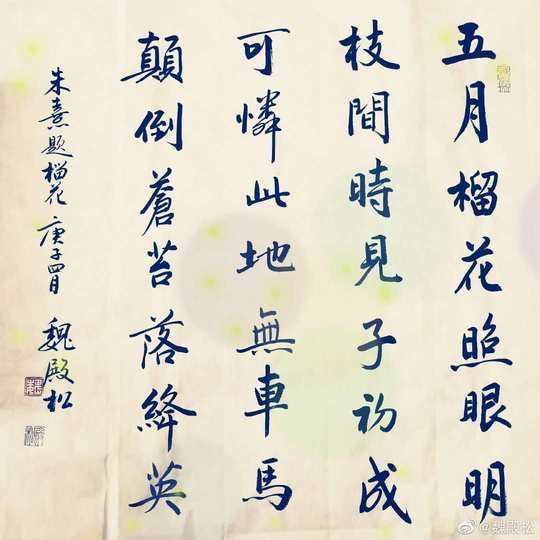 五月榴花照眼明
枝間時見子初成
可憐此地無車馬
顛倒蒼苔落絳英
朱熹題榴花 庚子四月 魏殿松
@魏殿松